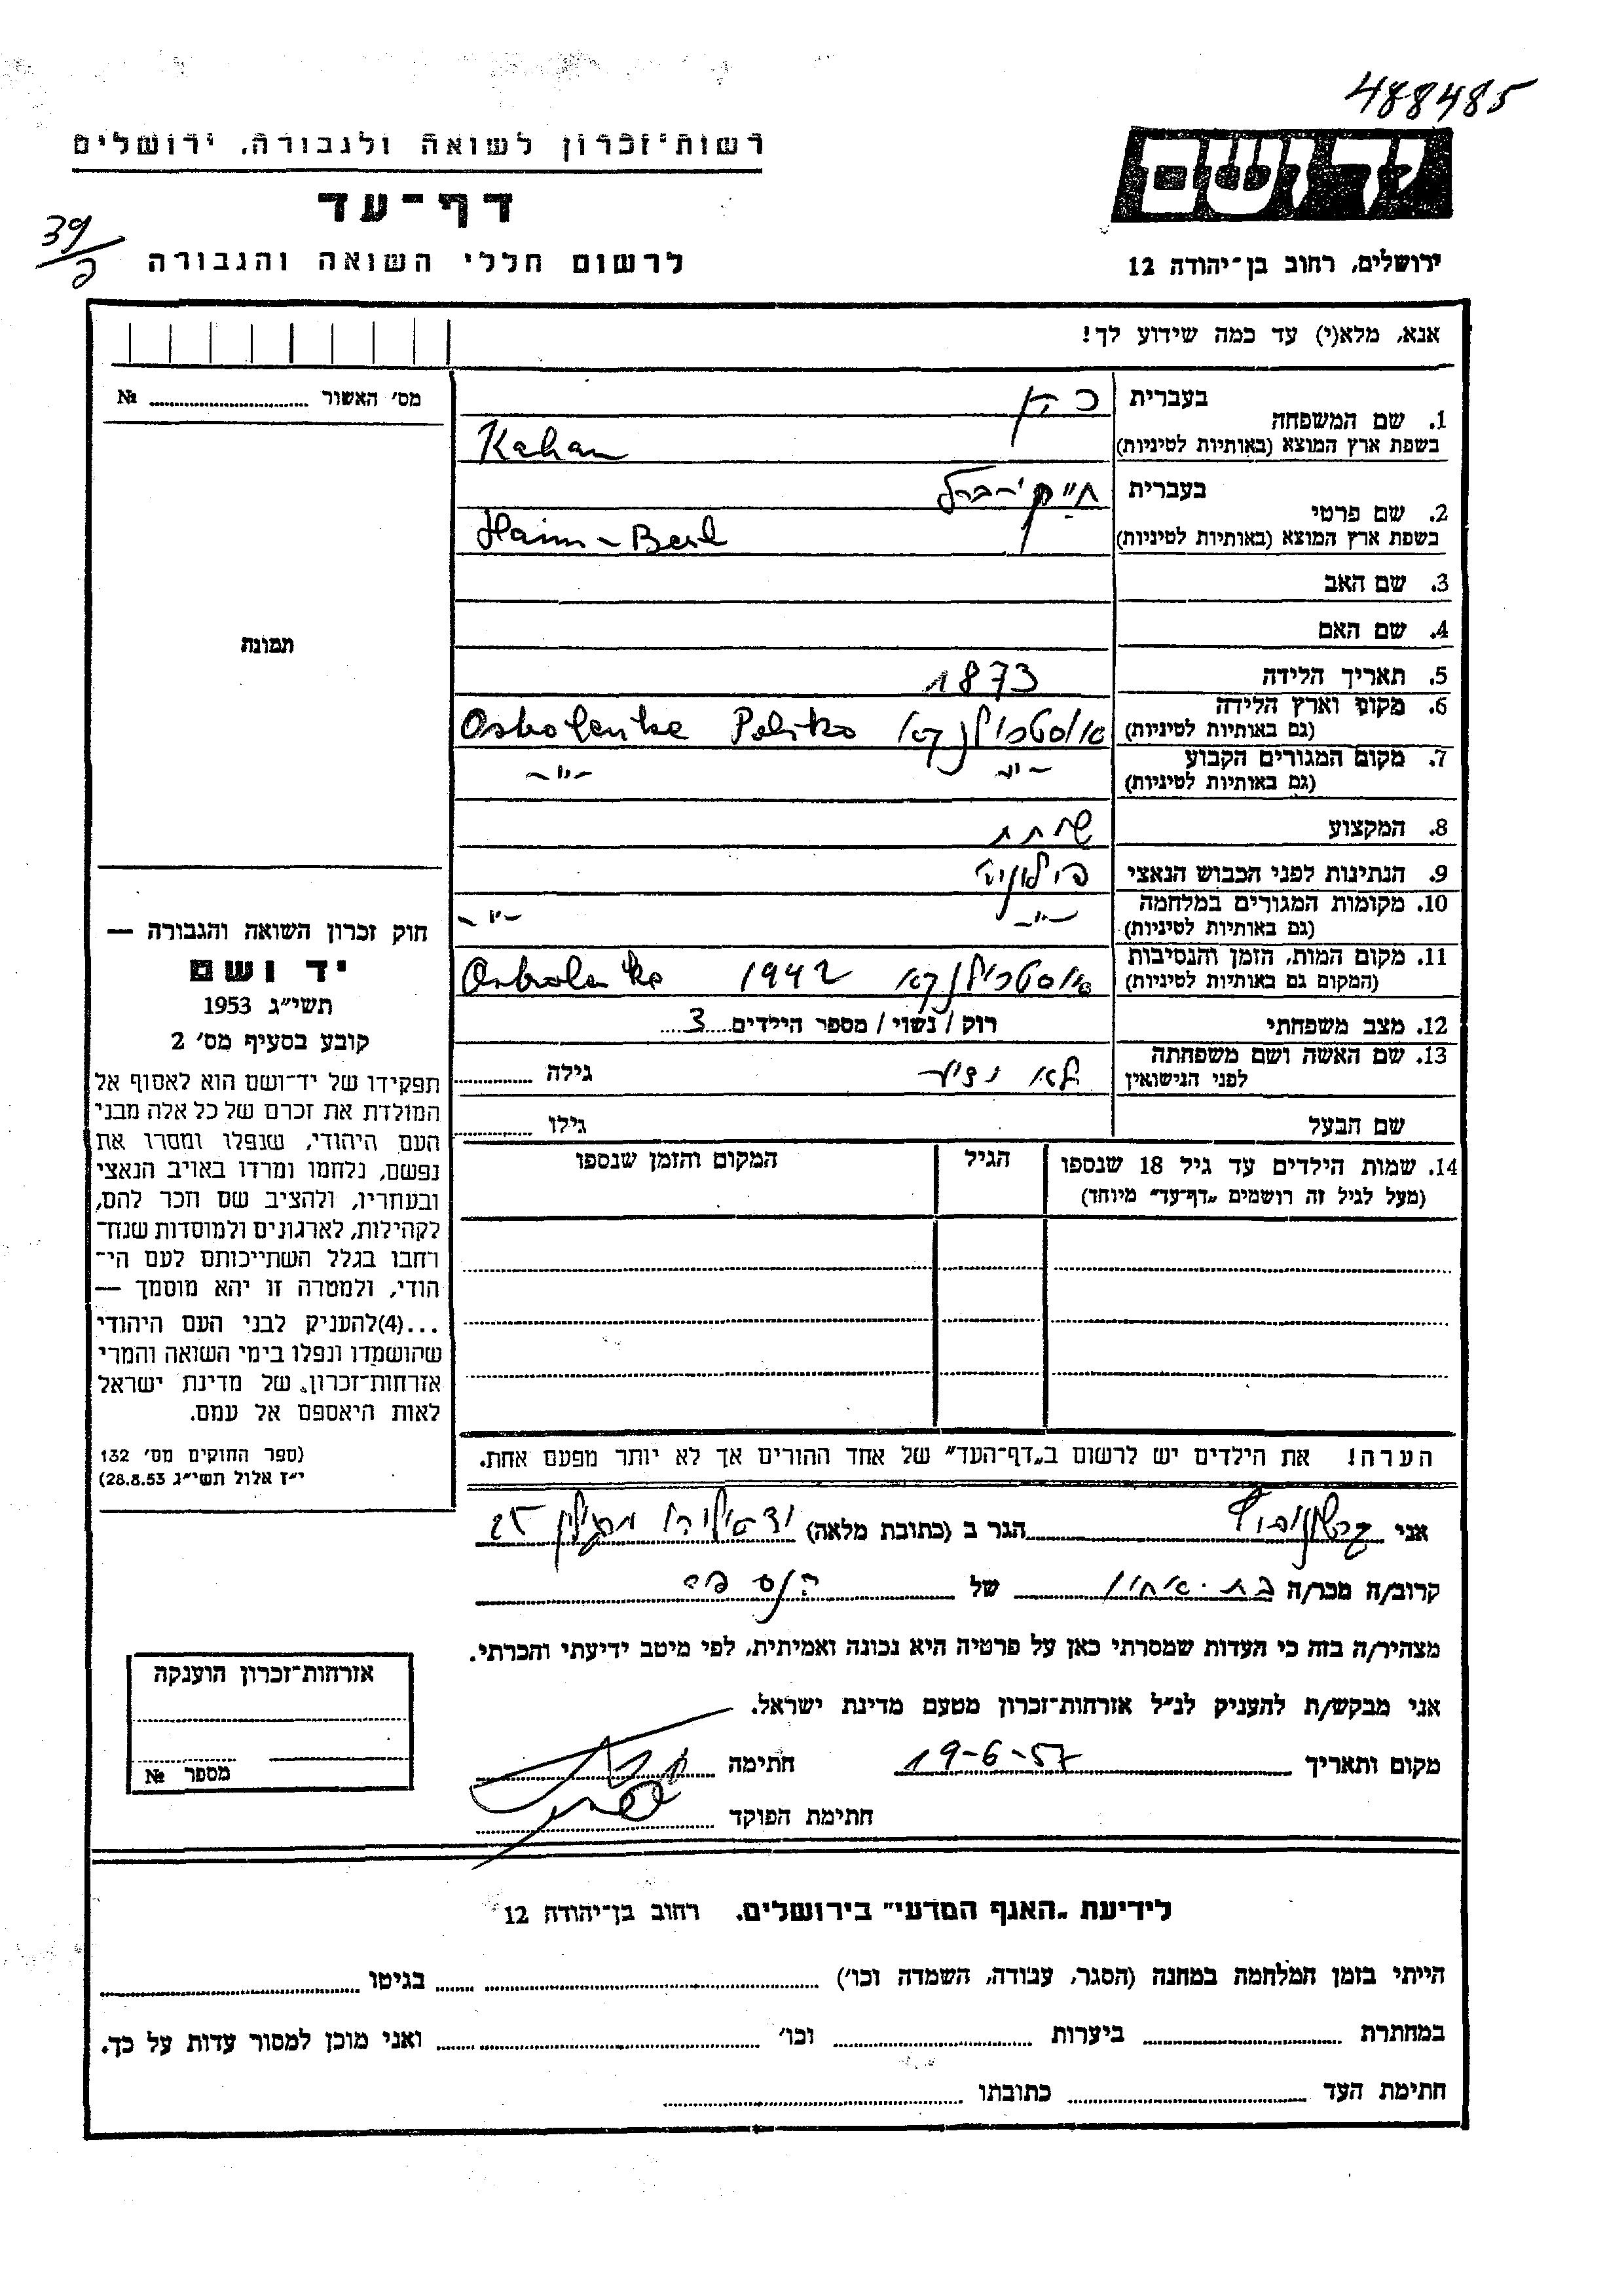 488485
רשות־זכרון לשואה ולגבורה, ירושלים
ידושם
דף־עד
39
לרשום חללי השואה והגבורה
ירושלים, רחוב בן־יהודה 12
אנא, מלא(י) עד כמה שידוע לך!
מס׳ האשור № 
1. שם המשפחה בעברית כהן
בשפת ארץ המוצא (באותיות לטיניות) Kahan
2. שם פרטי בעברית חיים־ברל
בשפת ארץ המוצא (באותיות לטיניות) Haim - Berl
3. שם האב
4. שם האם
תמונה
5. תאריך הלידה 1873
6. מקום וארץ הלידה (גם באותיות לטיניות) אוסטרולנקה Polsko Ostrolenka
7. מקום המגורים הקבוע (גם באותיות לטיניות) -״- -״-
8. המקצוע
9. הנתינות לפני הכבוש הנאצי פולונית
10. מקומות המגורים במלחמה (גם באותיות לטיניות) -״- -״-
11. מקום המות, הזמן והנסיבות (המקום גם באותיות לטיניות) אוסטרולנקה 1942 Ostrolenka
12. מצב משפחתי רוק / נשוי / מספר הילדים 3
13. שם האשה ושם משפחתה לפני הנישואין לאה גילה
שם הבעל גילו
14. שמות הילדים עד גיל 18 שנספו הגיל המקום והזמן שנספו
(מעל לגיל זה רושמים „דף־עד״ מיוחד)
הערה! את הילדים יש לרשום ב„דף־העד״ של אחד ההורים אך לא יותר מפעם אחת.
חוק זכרון השואה והגבורה —
יד ושם
תשי״ג 1953
קובע בסעיף מס׳ 2
תפקידו של יד־ושם הוא לאסוף אל
המולדת את זכרם של כל אלה מבני
העם היהודי, שנפלו ומסרו את
נפשם, נלחמו ומרדו באויב הנאצי
ובעוזריו, ולהציב שם וזכר להם,
לקהילות, לארגונים ולמוסדות שנח־
רחבו בגלל השתייכותם לעם הי־
הודי, ולמטרה זו יהא מוסמך —
...(4)להעניק לבני העם היהודי
שהושמדו ונפלו בימי השואה והמרי
אזרחות־זכרון של מדינת ישראל
לאות היאספם אל עמם.
(ספר החוקים מס׳ 132
י״ז אלול תשי״ג 28.8.53)
אני הגר ב (כתובת מלאה) 25
קרוב/ה מכר/ה של
מצהיר/ה בזה כי העדות שמסרתי כאן על פרטיה היא נכונה ואמיתית, לפי מיטב ידיעתי והכרתי.
אני מבקש/ת להעניק לנ״ל אזרחות־זכרון מטעם מדינת ישראל.
מקום ותאריך 19-6-57 חתימה
חתימת הפוקד
אזרחות־זכרון הוענקה
מספר №
לידיעת „האגף המדעי״ בירושלים, רחוב בן־יהודה 12
הייתי בזמן המלחמה במחנה (הסגר, עבודה, השמדה וכו׳) בגיטו
במחתרת ביערות וכו׳ ואני מוכן למסור עדות על כך.
חתימת העד כתובתו